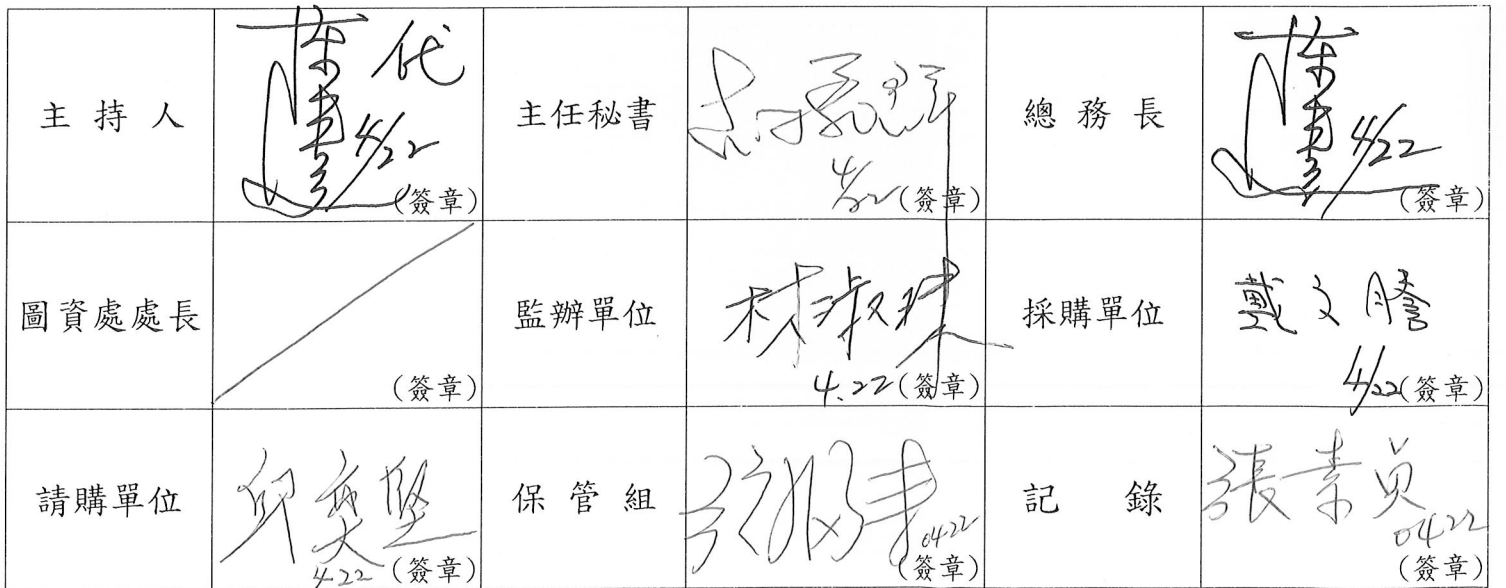 主持人 代 4/22 (簽章) 主任秘書 4/22 (簽章) 總務長 4/22 (簽章)
圖資處處長 (簽章) 監辦單位 林淑珠 4.22 (簽章) 採購單位 戴文謄 4/22 (簽章)
請購單位 邱奕堅 4.22 (簽章) 保管組 0422 (簽章) 記錄 張素貞 0422 (簽章)